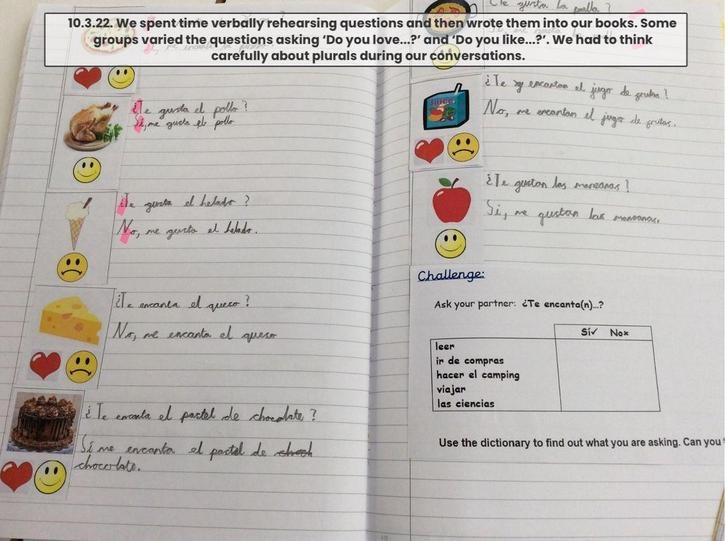 10.3.22. We spent time verbally rehearsing questions and then wrote them into our books. Some
groups varied the questions asking ‘Do you love...?’ and ‘Do you like...?’. We had to think
carefully about plurals during our conversations.
¿Te gusta el pollo?
Sí, me gusta el pollo
¿Te gusta el helado?
No, me gusta el helado.
¿Te encanta el queso?
No, me encanta el queso
¿Te encanta el pastel de chocolate?
Sí me encanta el pastel de
chocolate.
¿Te gusta la paella?
¿Te encantan el jugo de
No, me encantan el jugo de frutas.
¿Te gustan las manzanas?
Sí, me gustan las manzanas.
Challenge:
Ask your partner: ¿Te encanta(n)...?
Sí✓ No×
leer
ir de compras
hacer el camping
viajar
las ciencias
Use the dictionary to find out what you are asking. Can you